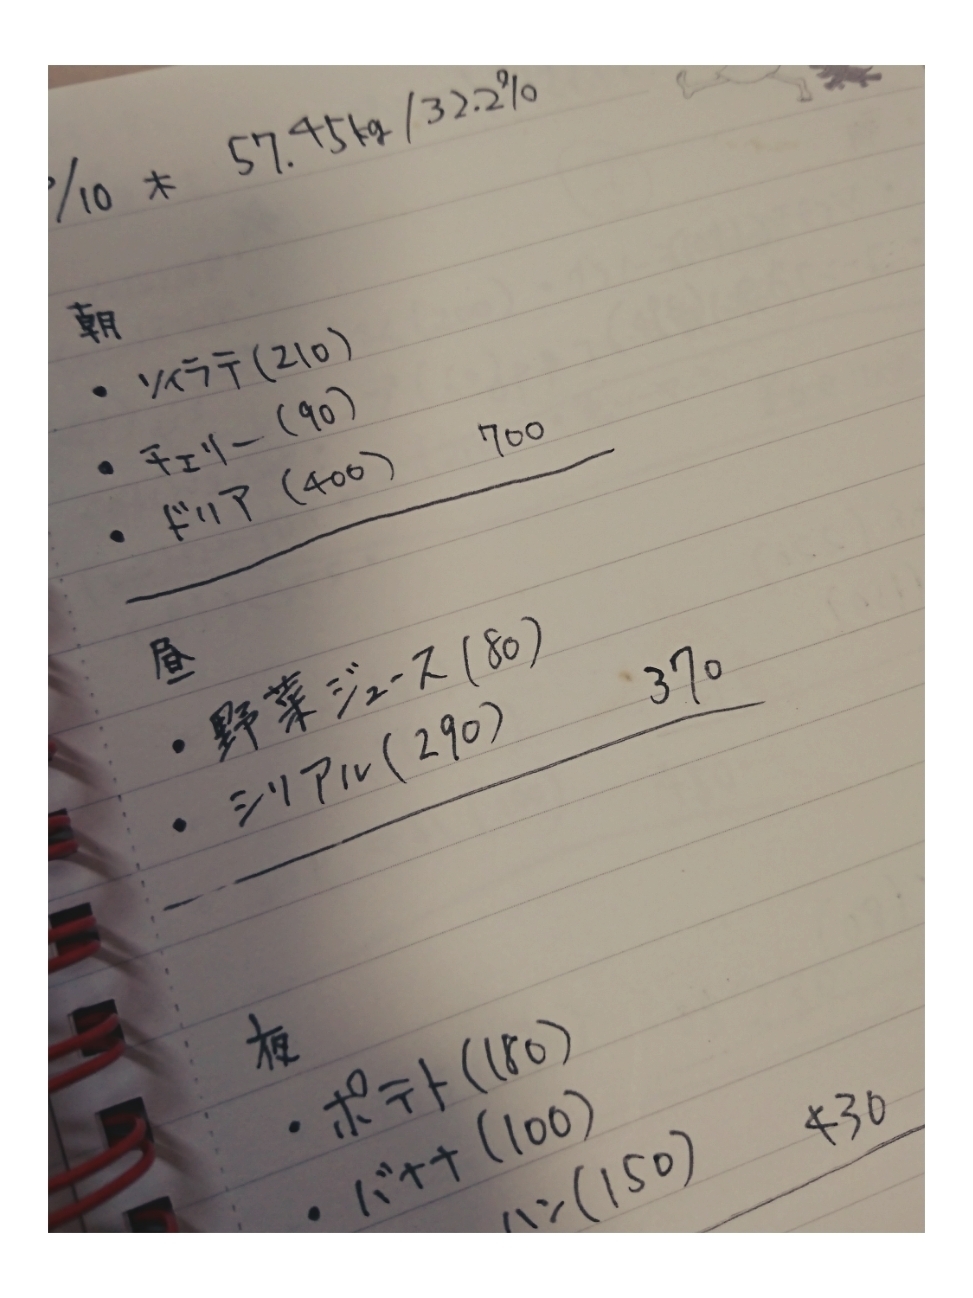 /10 木 57.45kg/32.2%
朝
・ソイラテ(210)
・チェリー(90)
・ドリア(400) 700
昼
・野菜ジュース(80)
・シリアル(290) 370
夜
・ポテト(180)
・バナナ(100)
(150) 430